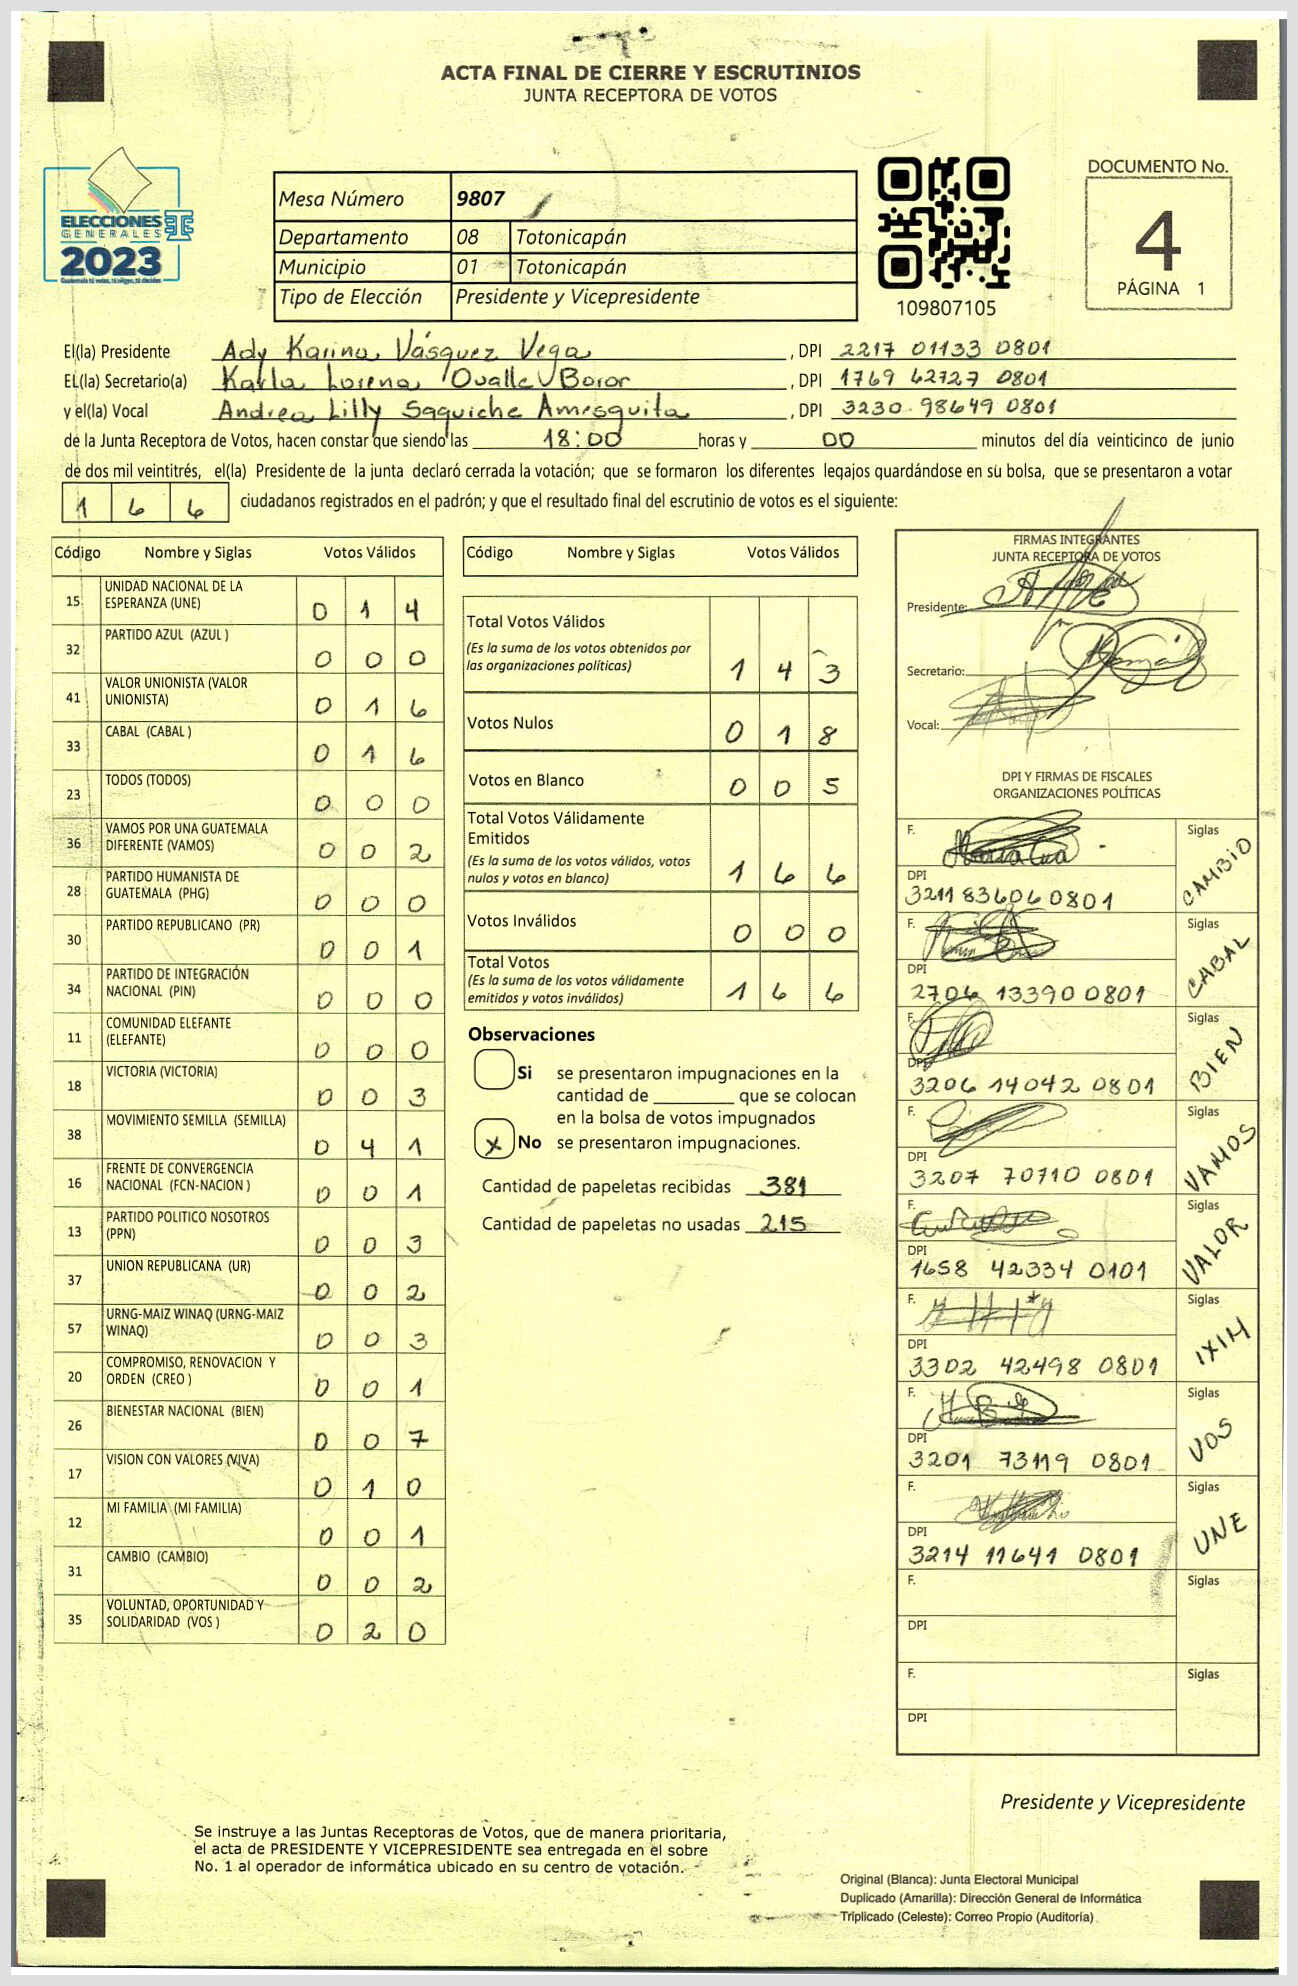 ACTA FINAL DE CIERRE Y ESCRUTINIOS
JUNTA RECEPTORA DE VOTOS
ELECCIONES
GENERALES
2023
Guatemala tú votas, tú eliges, tú decides
Mesa Número 9807
Departamento 08 Totonicapán
Municipio 01 Totonicapán
Tipo de Elección Presidente y Vicepresidente
109807105
DOCUMENTO No.
4
PÁGINA 1
El(la) Presidente Ady Karina Vásquez Vega , DPI 2217 01133 0801
EL(la) Secretario(a) Karla Lorena Ovalle Boror , DPI 1769 62727 0801
y el(la) Vocal Andrea Lilly Saquiche Amesquita , DPI 3230 98649 0801
de la Junta Receptora de Votos, hacen constar que siendo las 18:00 horas y 00 minutos del día veinticinco de junio
de dos mil veintitrés, el(la) Presidente de la junta declaró cerrada la votación; que se formaron los diferentes legajos guardándose en su bolsa, que se presentaron a votar
1 6 6 ciudadanos registrados en el padrón; y que el resultado final del escrutinio de votos es el siguiente:
Código Nombre y Siglas Votos Válidos
15 UNIDAD NACIONAL DE LA
ESPERANZA (UNE) 0 1 4
32 PARTIDO AZUL (AZUL ) 0 0 0
41 VALOR UNIONISTA (VALOR
UNIONISTA) 0 1 6
33 CABAL (CABAL ) 0 1 6
23 TODOS (TODOS) 0 0 0
36 VAMOS POR UNA GUATEMALA
DIFERENTE (VAMOS) 0 0 2
28 PARTIDO HUMANISTA DE
GUATEMALA (PHG) 0 0 0
30 PARTIDO REPUBLICANO (PR) 0 0 1
34 PARTIDO DE INTEGRACIÓN
NACIONAL (PIN) 0 0 0
11 COMUNIDAD ELEFANTE
(ELEFANTE) 0 0 0
18 VICTORIA (VICTORIA) 0 0 3
38 MOVIMIENTO SEMILLA (SEMILLA) 0 4 1
16 FRENTE DE CONVERGENCIA
NACIONAL (FCN-NACION ) 0 0 1
13 PARTIDO POLITICO NOSOTROS
(PPN) 0 0 3
37 UNION REPUBLICANA (UR) 0 0 2
57 URNG-MAIZ WINAQ (URNG-MAIZ
WINAQ) 0 0 3
20 COMPROMISO, RENOVACION Y
ORDEN (CREO ) 0 0 1
26 BIENESTAR NACIONAL (BIEN) 0 0 7
17 VISION CON VALORES (VIVA) 0 1 0
12 MI FAMILIA (MI FAMILIA) 0 0 1
31 CAMBIO (CAMBIO) 0 0 2
35 VOLUNTAD, OPORTUNIDAD Y
SOLIDARIDAD (VOS ) 0 2 0
Código Nombre y Siglas Votos Válidos
Total Votos Válidos
(Es la suma de los votos obtenidos por
las organizaciones políticas) 1 4 3
Votos Nulos 0 1 8
Votos en Blanco 0 0 5
Total Votos Válidamente
Emitidos
(Es la suma de los votos válidos, votos
nulos y votos en blanco) 1 6 6
Votos Inválidos 0 0 0
Total Votos
(Es la suma de los votos válidamente
emitidos y votos inválidos) 1 6 6
Observaciones
Si se presentaron impugnaciones en la
cantidad de ________ que se colocan
en la bolsa de votos impugnados
x No se presentaron impugnaciones.
Cantidad de papeletas recibidas 381
Cantidad de papeletas no usadas 215
FIRMAS INTEGRANTES
JUNTA RECEPTORA DE VOTOS
Presidente:
Secretario:
Vocal:
DPI Y FIRMAS DE FISCALES
ORGANIZACIONES POLÍTICAS
F. Siglas
DPI CAMBIO
3211 83606 0801
F. Siglas
DPI CABAL
2706 13390 0801
F. Siglas
DPI BIEN
3206 14042 0801
F. Siglas
DPI VAMOS
3207 70710 0801
F. Siglas
DPI VALOR
1658 42334 0101
F. Siglas
DPI IXIM
3302 42498 0801
F. Siglas
DPI VOS
3201 73119 0801
F. Siglas
DPI UNE
3214 11641 0801
F. Siglas
DPI
F. Siglas
DPI
Presidente y Vicepresidente
Se instruye a las Juntas Receptoras de Votos, que de manera prioritaria,
el acta de PRESIDENTE Y VICEPRESIDENTE sea entregada en el sobre
No. 1 al operador de informática ubicado en su centro de votación.
Original (Blanca): Junta Electoral Municipal
Duplicado (Amarilla): Dirección General de Informática
Triplicado (Celeste): Correo Propio (Auditoría)